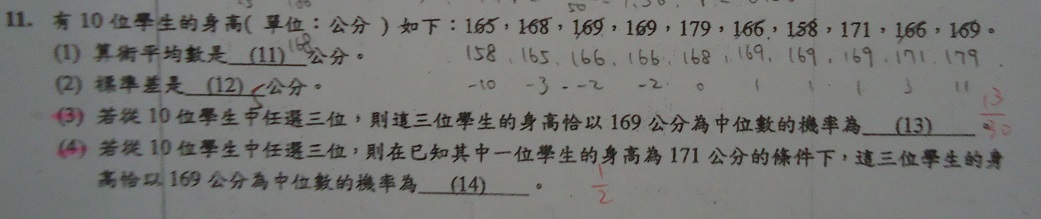 11. 有 10 位學生的身高( 單位：公分 ) 如下：165，168，169，169，179，166，158，171，166，169。
(1) 算術平均數是 (11) 168 公分。 158, 165, 166, 166, 168, 169, 169, 169, 171, 179
(2) 標準差是 (12) 5 公分。 -10 -3 -2 -2 0 1 1 1 3 11
(3) 若從 10 位學生中任選三位，則這三位學生的身高恰以 169 公分為中位數的機率為 (13) 。 13/30
(4) 若從 10 位學生中任選三位，則在已知其中一位學生的身高為 171 公分的條件下，這三位學生的身
高恰以 169 公分為中位數的機率為 (14) 。 1/2